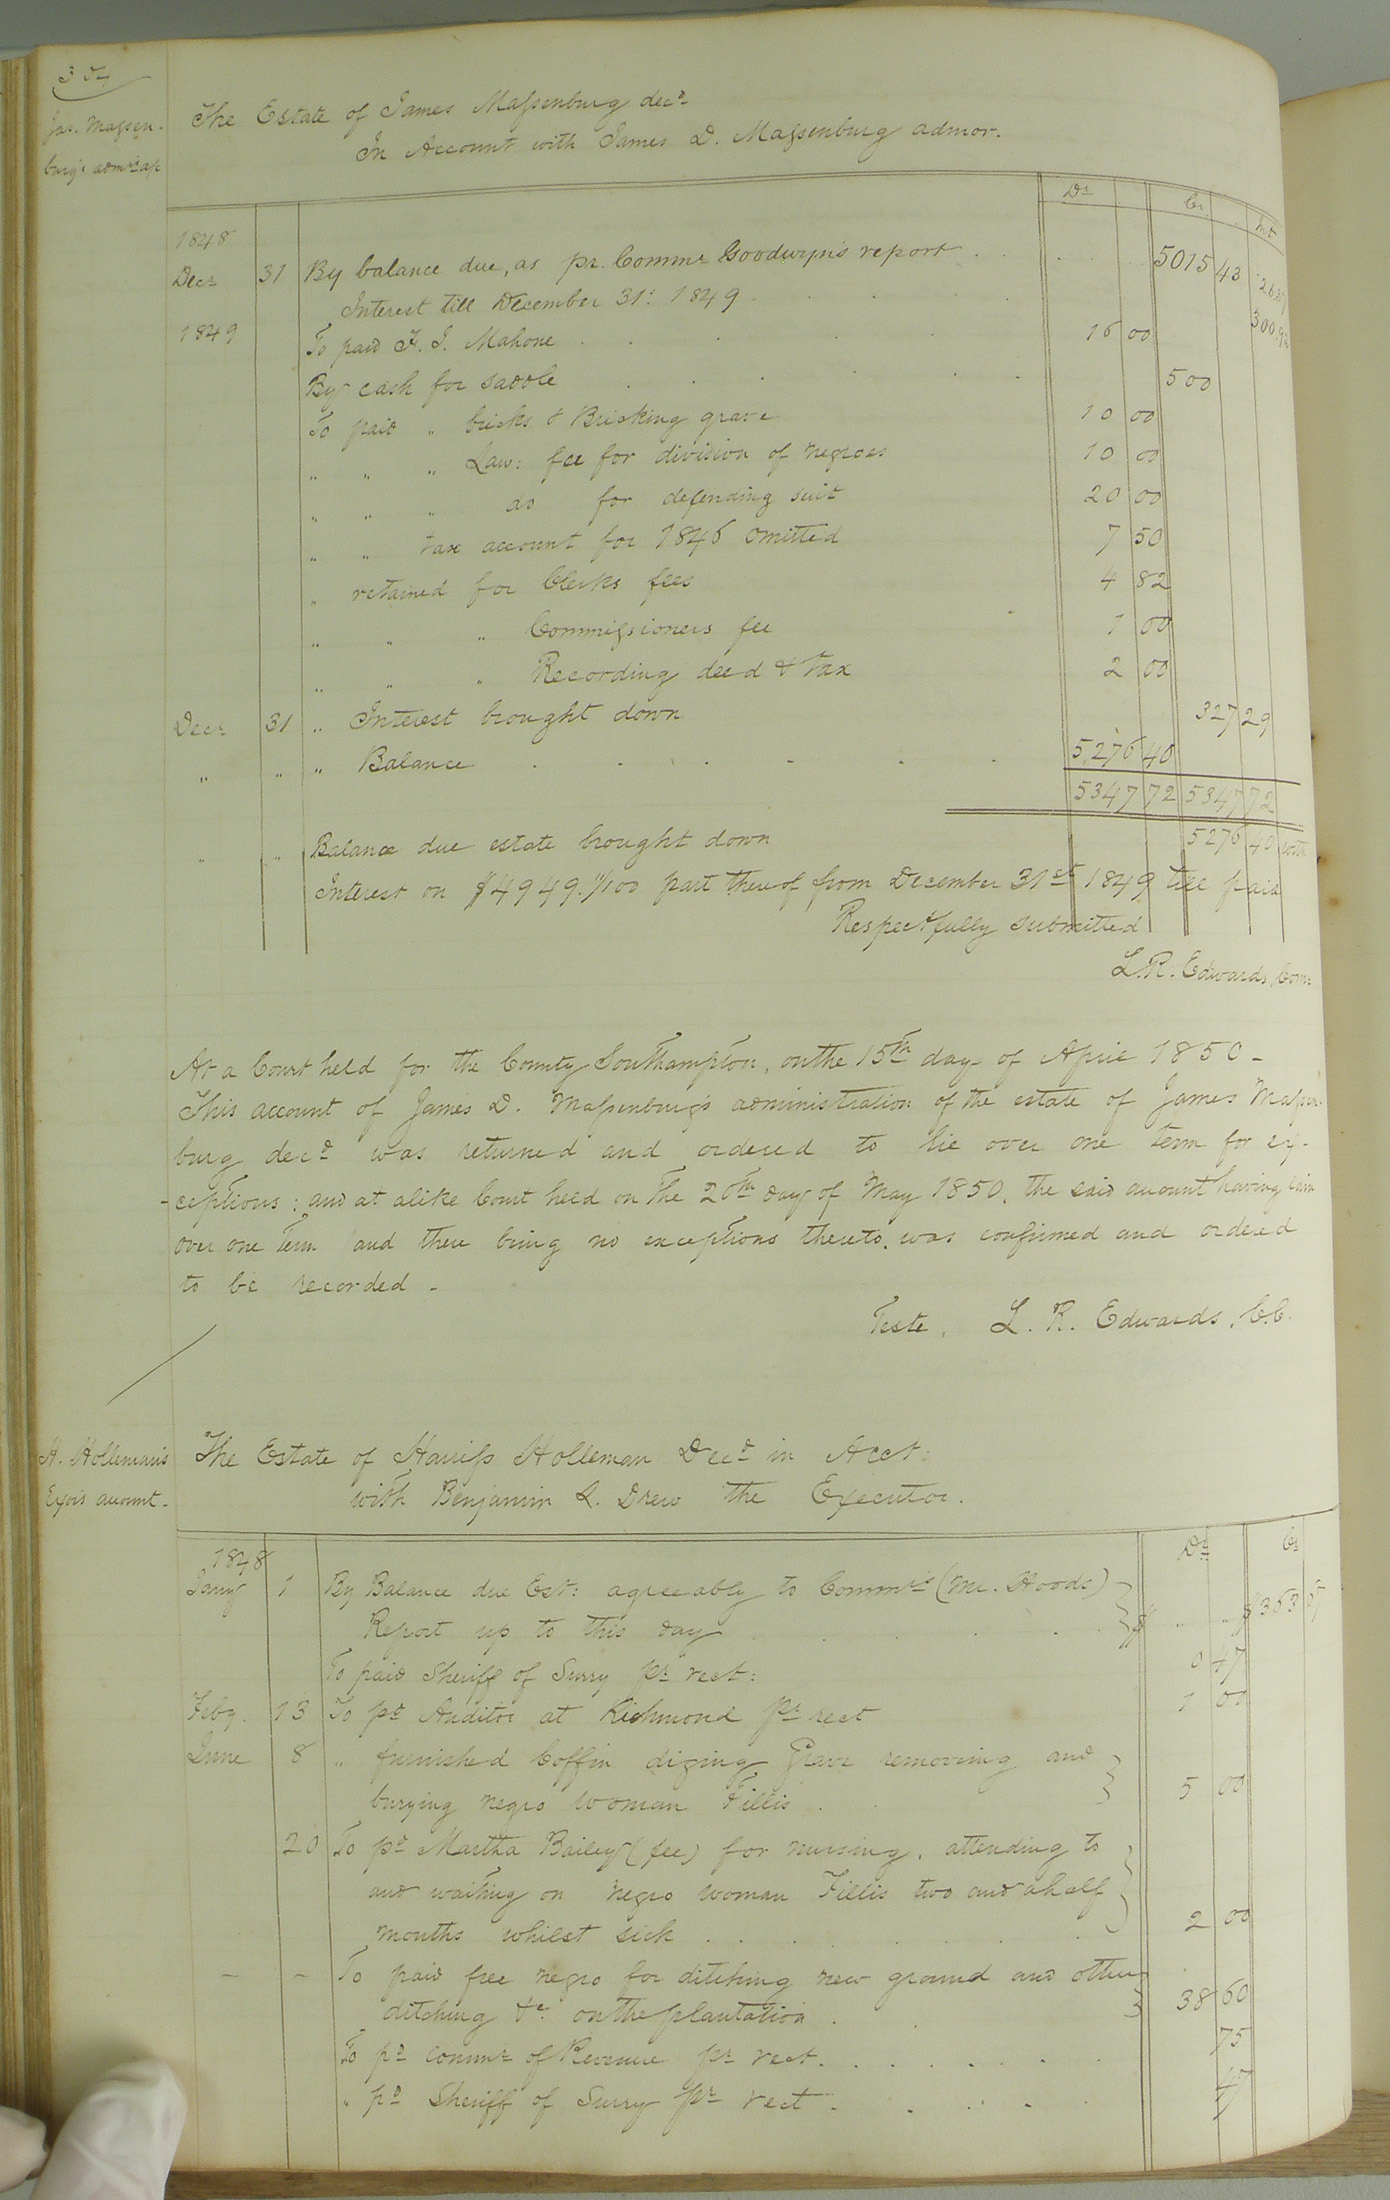 354
Jas. Massen-
burg's admrs ac
The Estate of James Massenburg decd
In Account with James D. Massenburg admor.
Dr Cr Int
1848
Decr 31 By balance due, as pr. Commr Goodwyn's report 5015 43 26.37
Interest till December 31: 1849 300.92
1849 To paid F. J. Mahone 16 00
By cash for saddle 5 00
To paid " bricks & Bricking grave 10 00
" " " Law: fee for division of negroes 10 00
" " " do for defending suit 20 00
" " tax account for 1846 omitted 7 50
" retained for Clerks fees 4 82
" " " Commissioners fee 1 00
" " " Recording deed & tax 2 00
Decr 31 " Interest brought down 327 29
" " " Balance 5,276 40
5347 72 5347 72
" " Balance due estate brought down 5276 40 with
Interest on $4949.11/100 part thereof from December 31st 1849 till paid
Respectfully submitted
L. R. Edwards, Comr
At a Court held for the County Southampton, on the 15th day of April 1850 -
This account of James D. Massenburg's administration of the estate of James Massen-
burg decd was returned and ordered to lie over one term for ex-
-ceptions: and at alike Court held on the 20th day of May 1850, the said amount having lain
over one Term and there being no exceptions thereto, was confirmed and ordered
to be recorded -
Teste, L. R. Edwards, C.C.
H. Holleman's
Exors account.
The Estate of Harriss Holleman Decd in Acct:
with Benjamin L. Drew the Executor.
Dr Cr
1848
Jany 1 By Balance due Est: agreeably to Commrs (Mr. Hoods)
Report up to this day $ " " $353 57
To paid Sheriff of Surry pr rect: 0 47
Feby. 13 To pd Auditor at Richmond pr rect 1 00
June 8 " furnished Coffin diging Grave removing and
burying negro woman Fillis 5 00
20 To pd Martha Bailey (fee) for nursing, attending to
and waiting on negro woman Fillis two and ahalf
months whilst sick 2 00
- - To paid free negro for ditching new ground and other
ditching &c. on the plantation 38 60
To pd commr of Revenue pr rect. 75
" pd Sheriff of Surry pr rect. 47